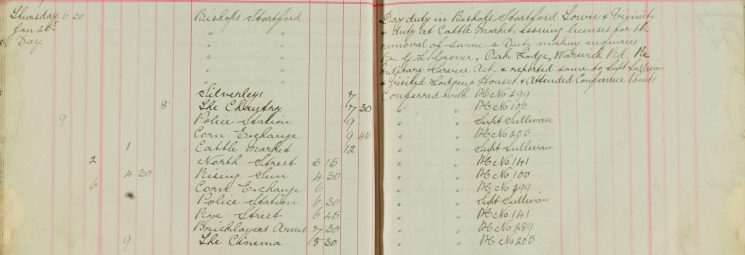 Thursday 6 30 Bishops Stortford
Jan 25th
Day
Silverleys 7
8 The Chantry 7 30
9 Police Station 9
Corn Exchange 9 45
1 Cattle Market 12
2 North Street 2 15
4 30 Rising Sun 4 30
6 Corn Exchange 6
Police Station 6 30
Rye Street 6 45
Bricklayers Arms 7 30
9 The Cinema 8 30
Day duty in Bishops Stortford Town & Vicinity
& duty at Cattle Market, issuing licenses for the
removal of Swine & Duty making inquiries
Re G. L. Glover, Oak Lodge, Warwick Rd, Re
Military Service Act & reported same to Supt Sullivan
& Visited Lodging Houses & Attended Conference Points
Conferred with PC No 299
" " PC No 105
" " Supt Sullivan
" " PC No 205
" " Supt Sullivan
" " PC No 141
" " PC No 100
" " PC No 299
" " Supt Sullivan
" " PC No 141
" " PC No 289
" " PC No 205